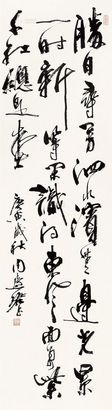 勝日尋芳泗水濱無邊光景
一時新等閒識得東風面萬紫
千紅總是春
庚寅秋周